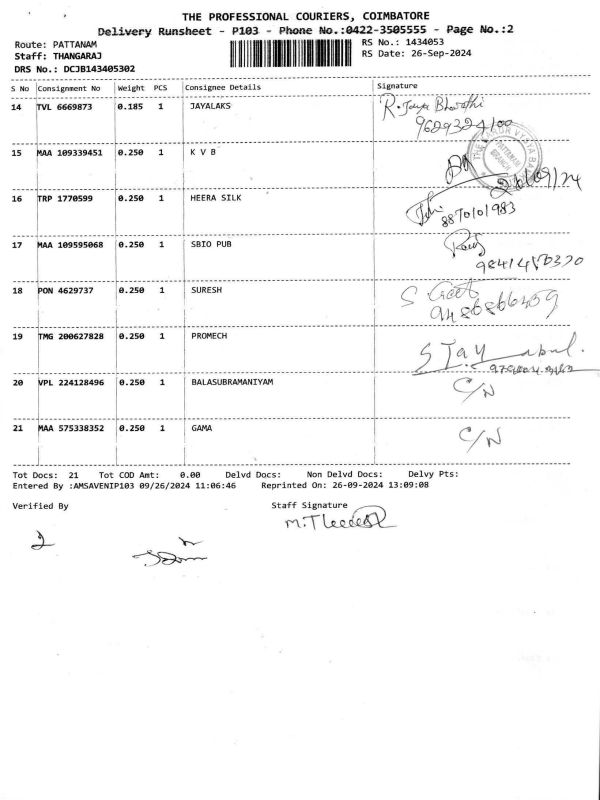 THE PROFESSIONAL COURIERS, COIMBATORE
Delivery Runsheet - P103 - Phone No.:0422-3505555 - Page No.:2
Route: PATTANAM RS No.: 1434053
Staff: THANGARAJ RS Date: 26-Sep-2024
DRS No.: DCJB143405302
S No Consignment No Weight PCS Consignee Details Signature
14 TVL 6669873 0.185 1 JAYALAKS R. Jaya Bharathi
9629324100
15 MAA 109339451 0.250 1 K V B
PATTANAM BRANCH
26/09/24
16 TRP 1770599 0.250 1 HEERA SILK
8870101983
17 MAA 109595068 0.250 1 SBIO PUB
18 PON 4629737 0.250 1 SURESH S
19 TMG 200627828 0.250 1 PROMECH
20 VPL 224128496 0.250 1 BALASUBRAMANIYAM C/N
21 MAA 575338352 0.250 1 GAMA C/N
Tot Docs: 21 Tot COD Amt: 0.00 Delvd Docs: Non Delvd Docs: Delvy Pts:
Entered By :AMSAVENIP103 09/26/2024 11:06:46 Reprinted On: 26-09-2024 13:09:08
Verified By Staff Signature